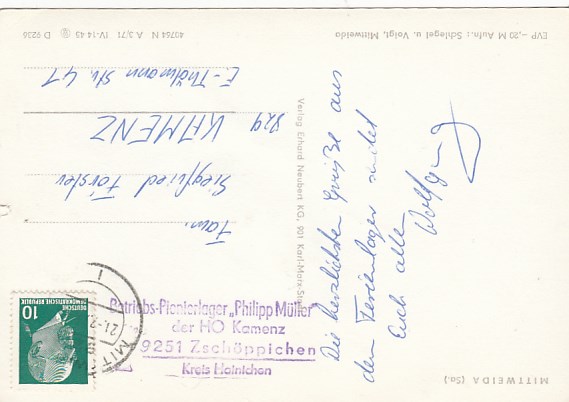 MITTWEIDA (Sa.)
Die herzlichsten Grüße aus
dem Ferienlager sendet
Euch alle
Wolfgang
Verlag Erhard Neubert KG, 901 Karl-Marx-Stadt
EVP -,20 M Aufn.: Schlegel u. Voigt, Mittweida
40764 N A 3/71 IV-14-45 D 9236
Fam.
Siegfried Förster
829 KAMENZ
E.-Thälmann Str. 41
Betriebs-Pionierlager „Philipp Müller"
der HO Kamenz
9251 Zschöppichen
Kreis Hainichen
10
DEUTSCHE
DEMOKRATISCHE REPUBLIK